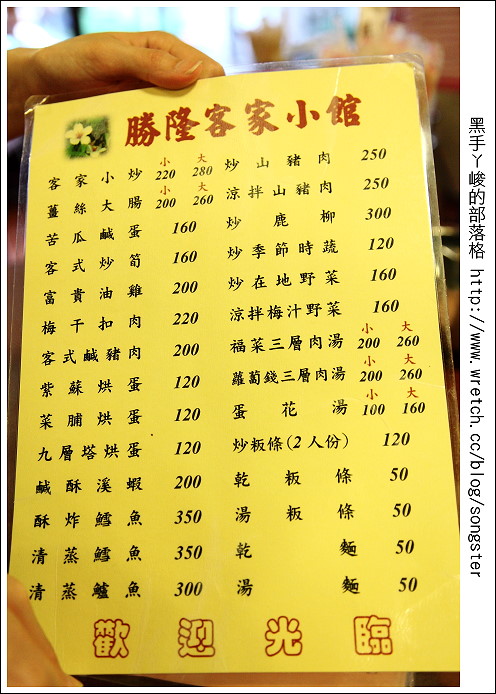 勝隆客家小館
小 大
客家小炒 220 280
小 大
薑絲大腸 200 260
苦瓜鹹蛋 160
客式炒筍 160
富貴油雞 200
梅干扣肉 220
客式鹹豬肉 200
紫蘇烘蛋 120
菜脯烘蛋 120
九層塔烘蛋 120
鹹酥溪蝦 200
酥炸鱈魚 350
清蒸鱈魚 350
清蒸鱸魚 300
炒山豬肉 250
涼拌山豬肉 250
炒鹿柳 300
炒季節時蔬 120
炒在地野菜 160
涼拌梅汁野菜 160
小 大
福菜三層肉湯 200 260
小 大
蘿蔔錢三層肉湯 200 260
小 大
蛋花湯 100 160
炒粄條(2人份) 120
乾粄條 50
湯粄條 50
乾麵 50
湯麵 50
歡迎光臨
黑手ㄚ峻的部落格 http://www.wretch.cc/blog/songster